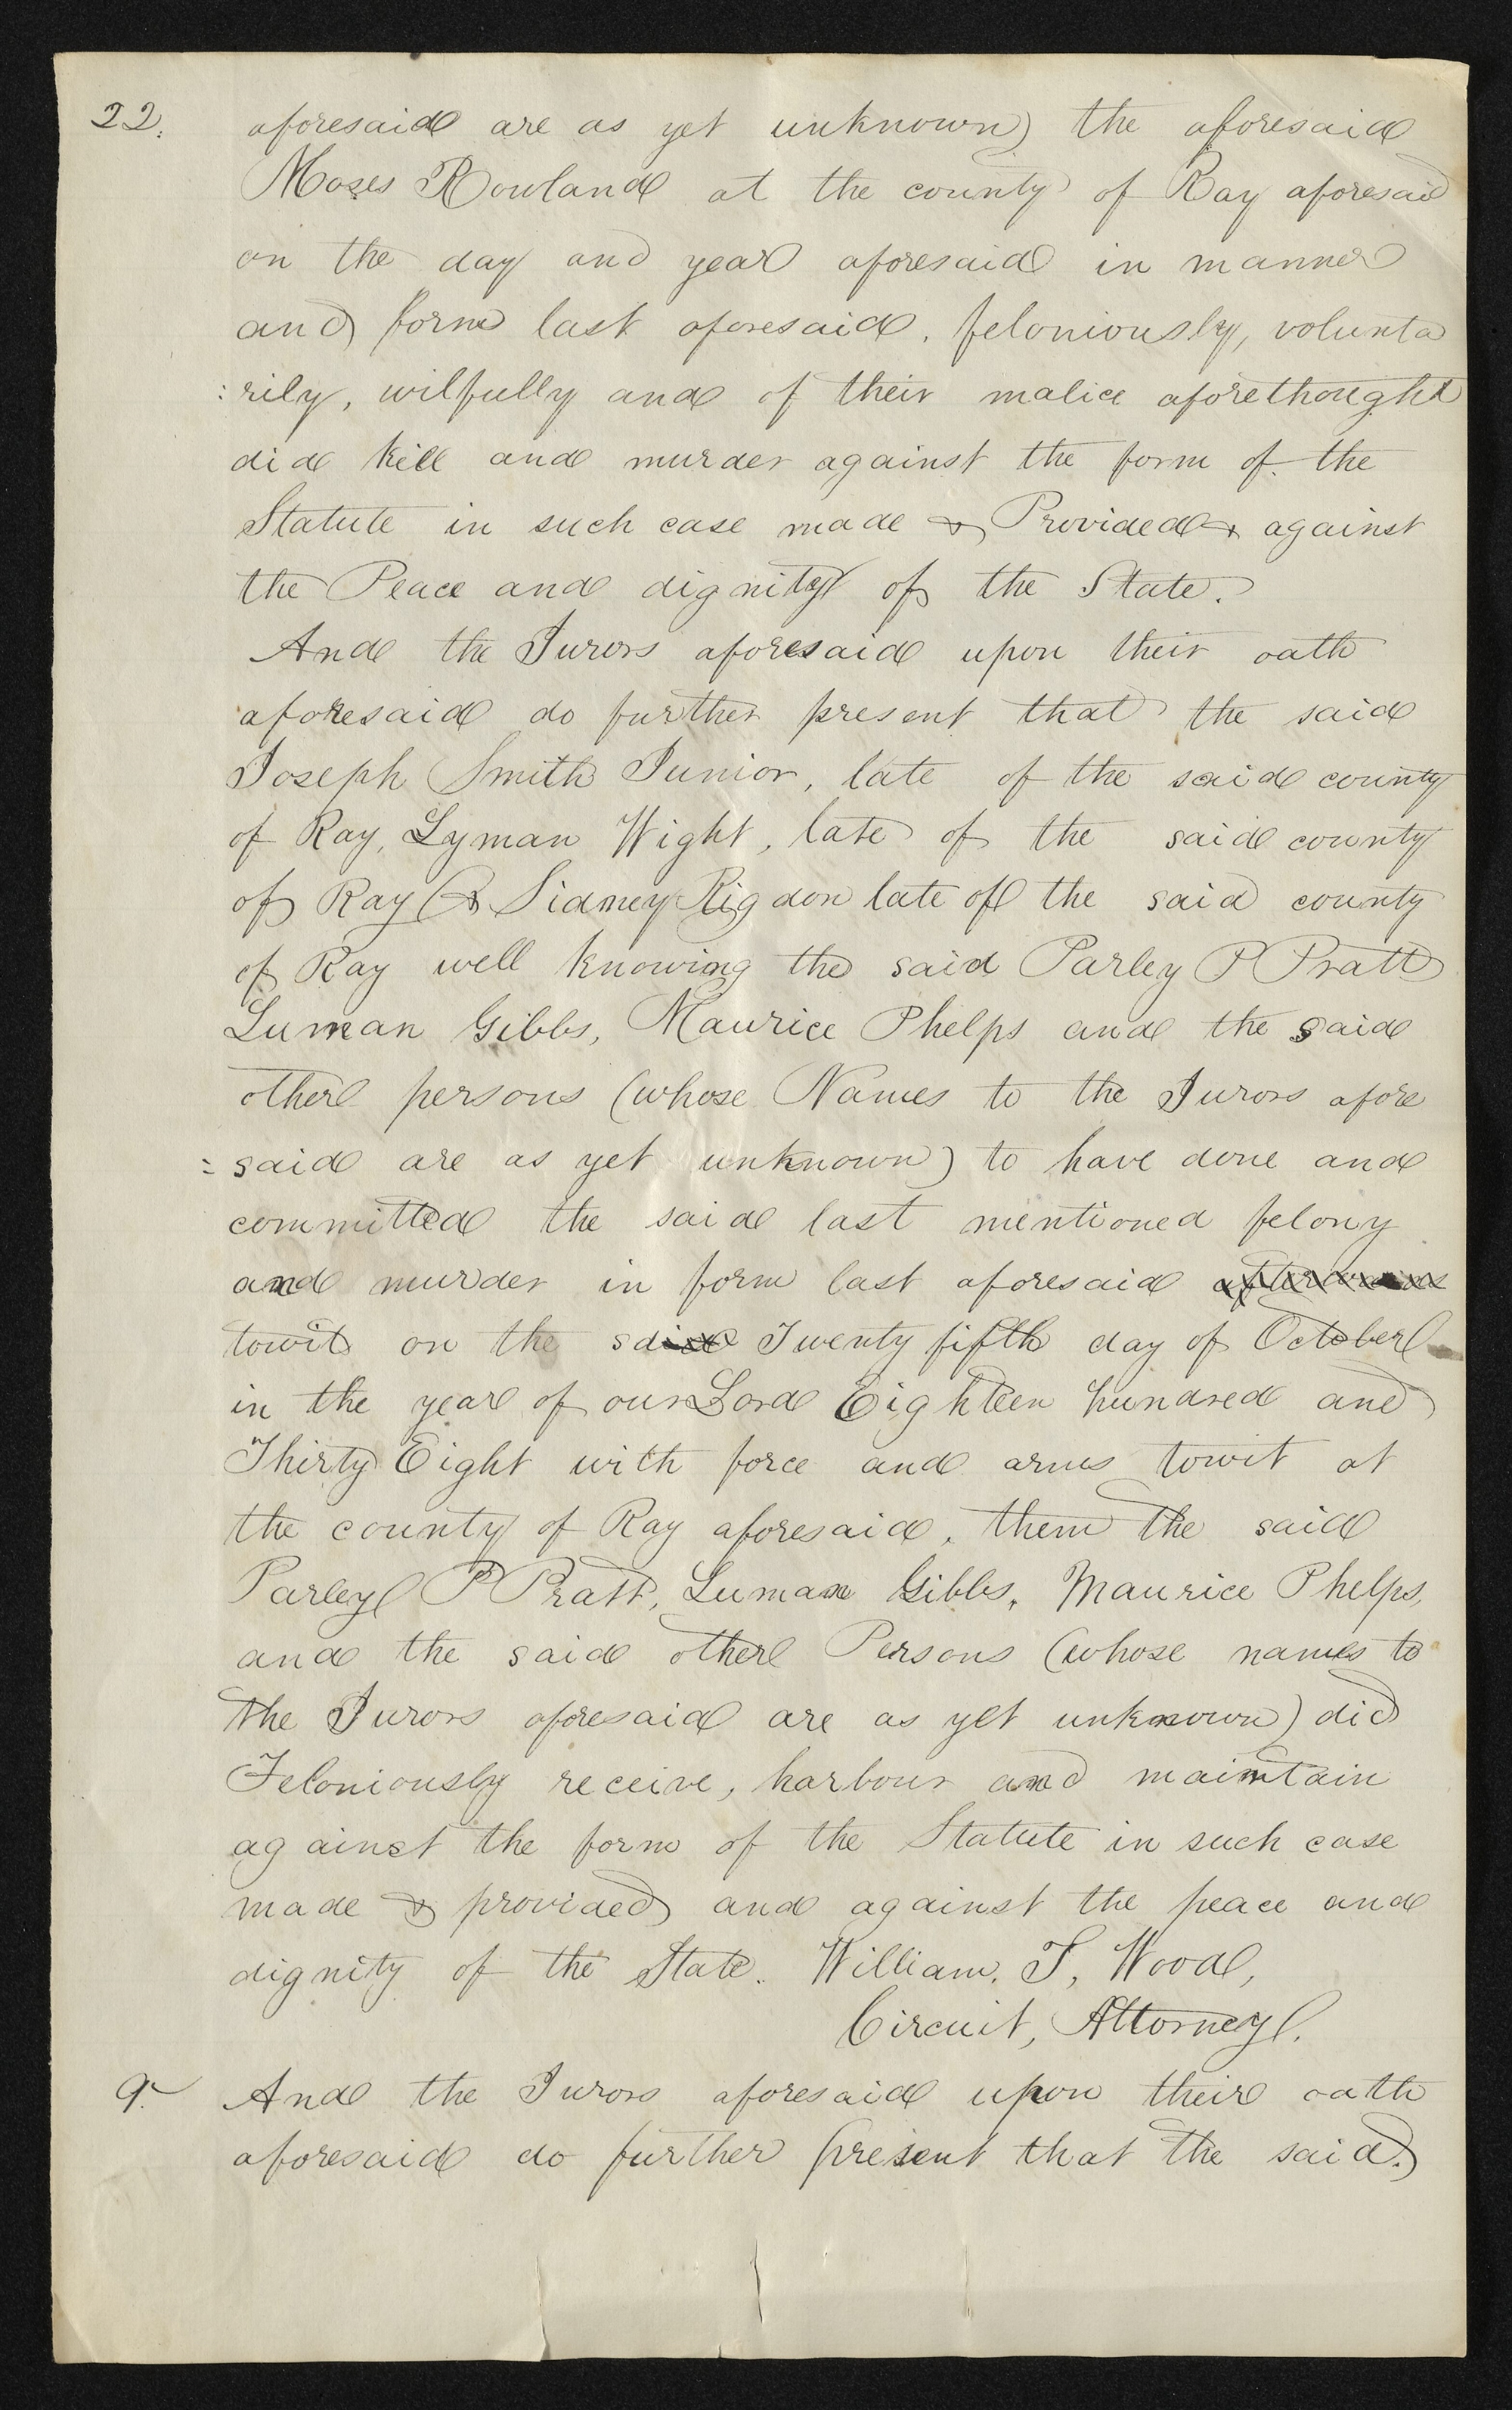 22.
aforesaid are as yet unknown) the aforesaid
Moses Rowland at the county of Ray aforesaid
on the day and year aforesaid in manner
and form last aforesaid, feloniously, volunta
:rily, wilfully and of their malice aforethought
did kill and murder against the form of the
Statute in such case made & Provided & against
the Peace and dignity of the State.
And the Jurors aforesaid upon their oath
aforesaid do further present that the said
Joseph Smith Junior, late of the said county
of Ray, Lyman Wight, late of the said county
of Ray & Sidney Rigdon late of the said county
of Ray well knowing the said Parley P Pratt
Luman Gibbs, Maurice Phelps and the said
other persons (whose Names to the Jurors afore
=said are as yet unknown) to have done and
committed the said last mentioned felony
and murder in form last aforesaid afterwards
towit on the said Twenty fifth day of October
in the year of our Lord Eighteen hundred and
Thirty Eight with force and arms towit at
the county of Ray aforesaid, them the said
Parley P Pratt, Luman Gibbs, Maurice Phelps,
and the said other Persons (whose names to
the Jurors aforesaid are as yet unknown) did
Feloniously receive, harbour and maintain
against the form of the Statute in such case
made & provided and against the peace and
dignity of the State. William, T, Wood,
Circuit, Attorney.
9. And the Jurors aforesaid upon their oath
aforesaid do further present that the said.